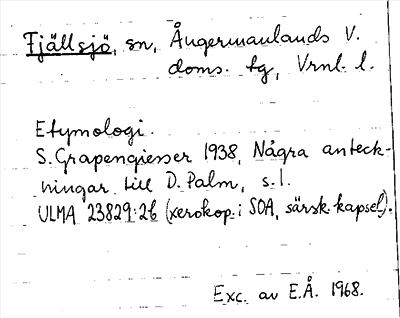 Fjällsjö, sn, Ångermanlands V.
doms. tg, Vrnl. l.
Etymologi.
S. Grapengiesser 1938, Några anteck-
ningar till D. Palm, s. 1.
ULMA 23829:26 (xerokop. i SOA, särsk. kapsel).
Exc. av E.Å. 1968.